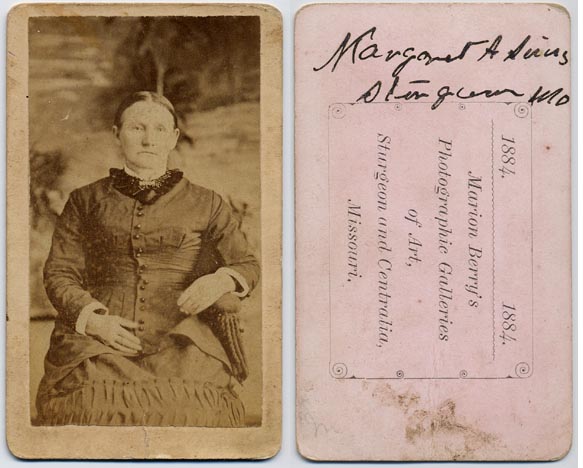 Margaret A Sims
Sturgeon Mo
1884. 1884.
Marion Berry's
Photographic Galleries
of Art,
Sturgeon and Centralia,
Missouri.